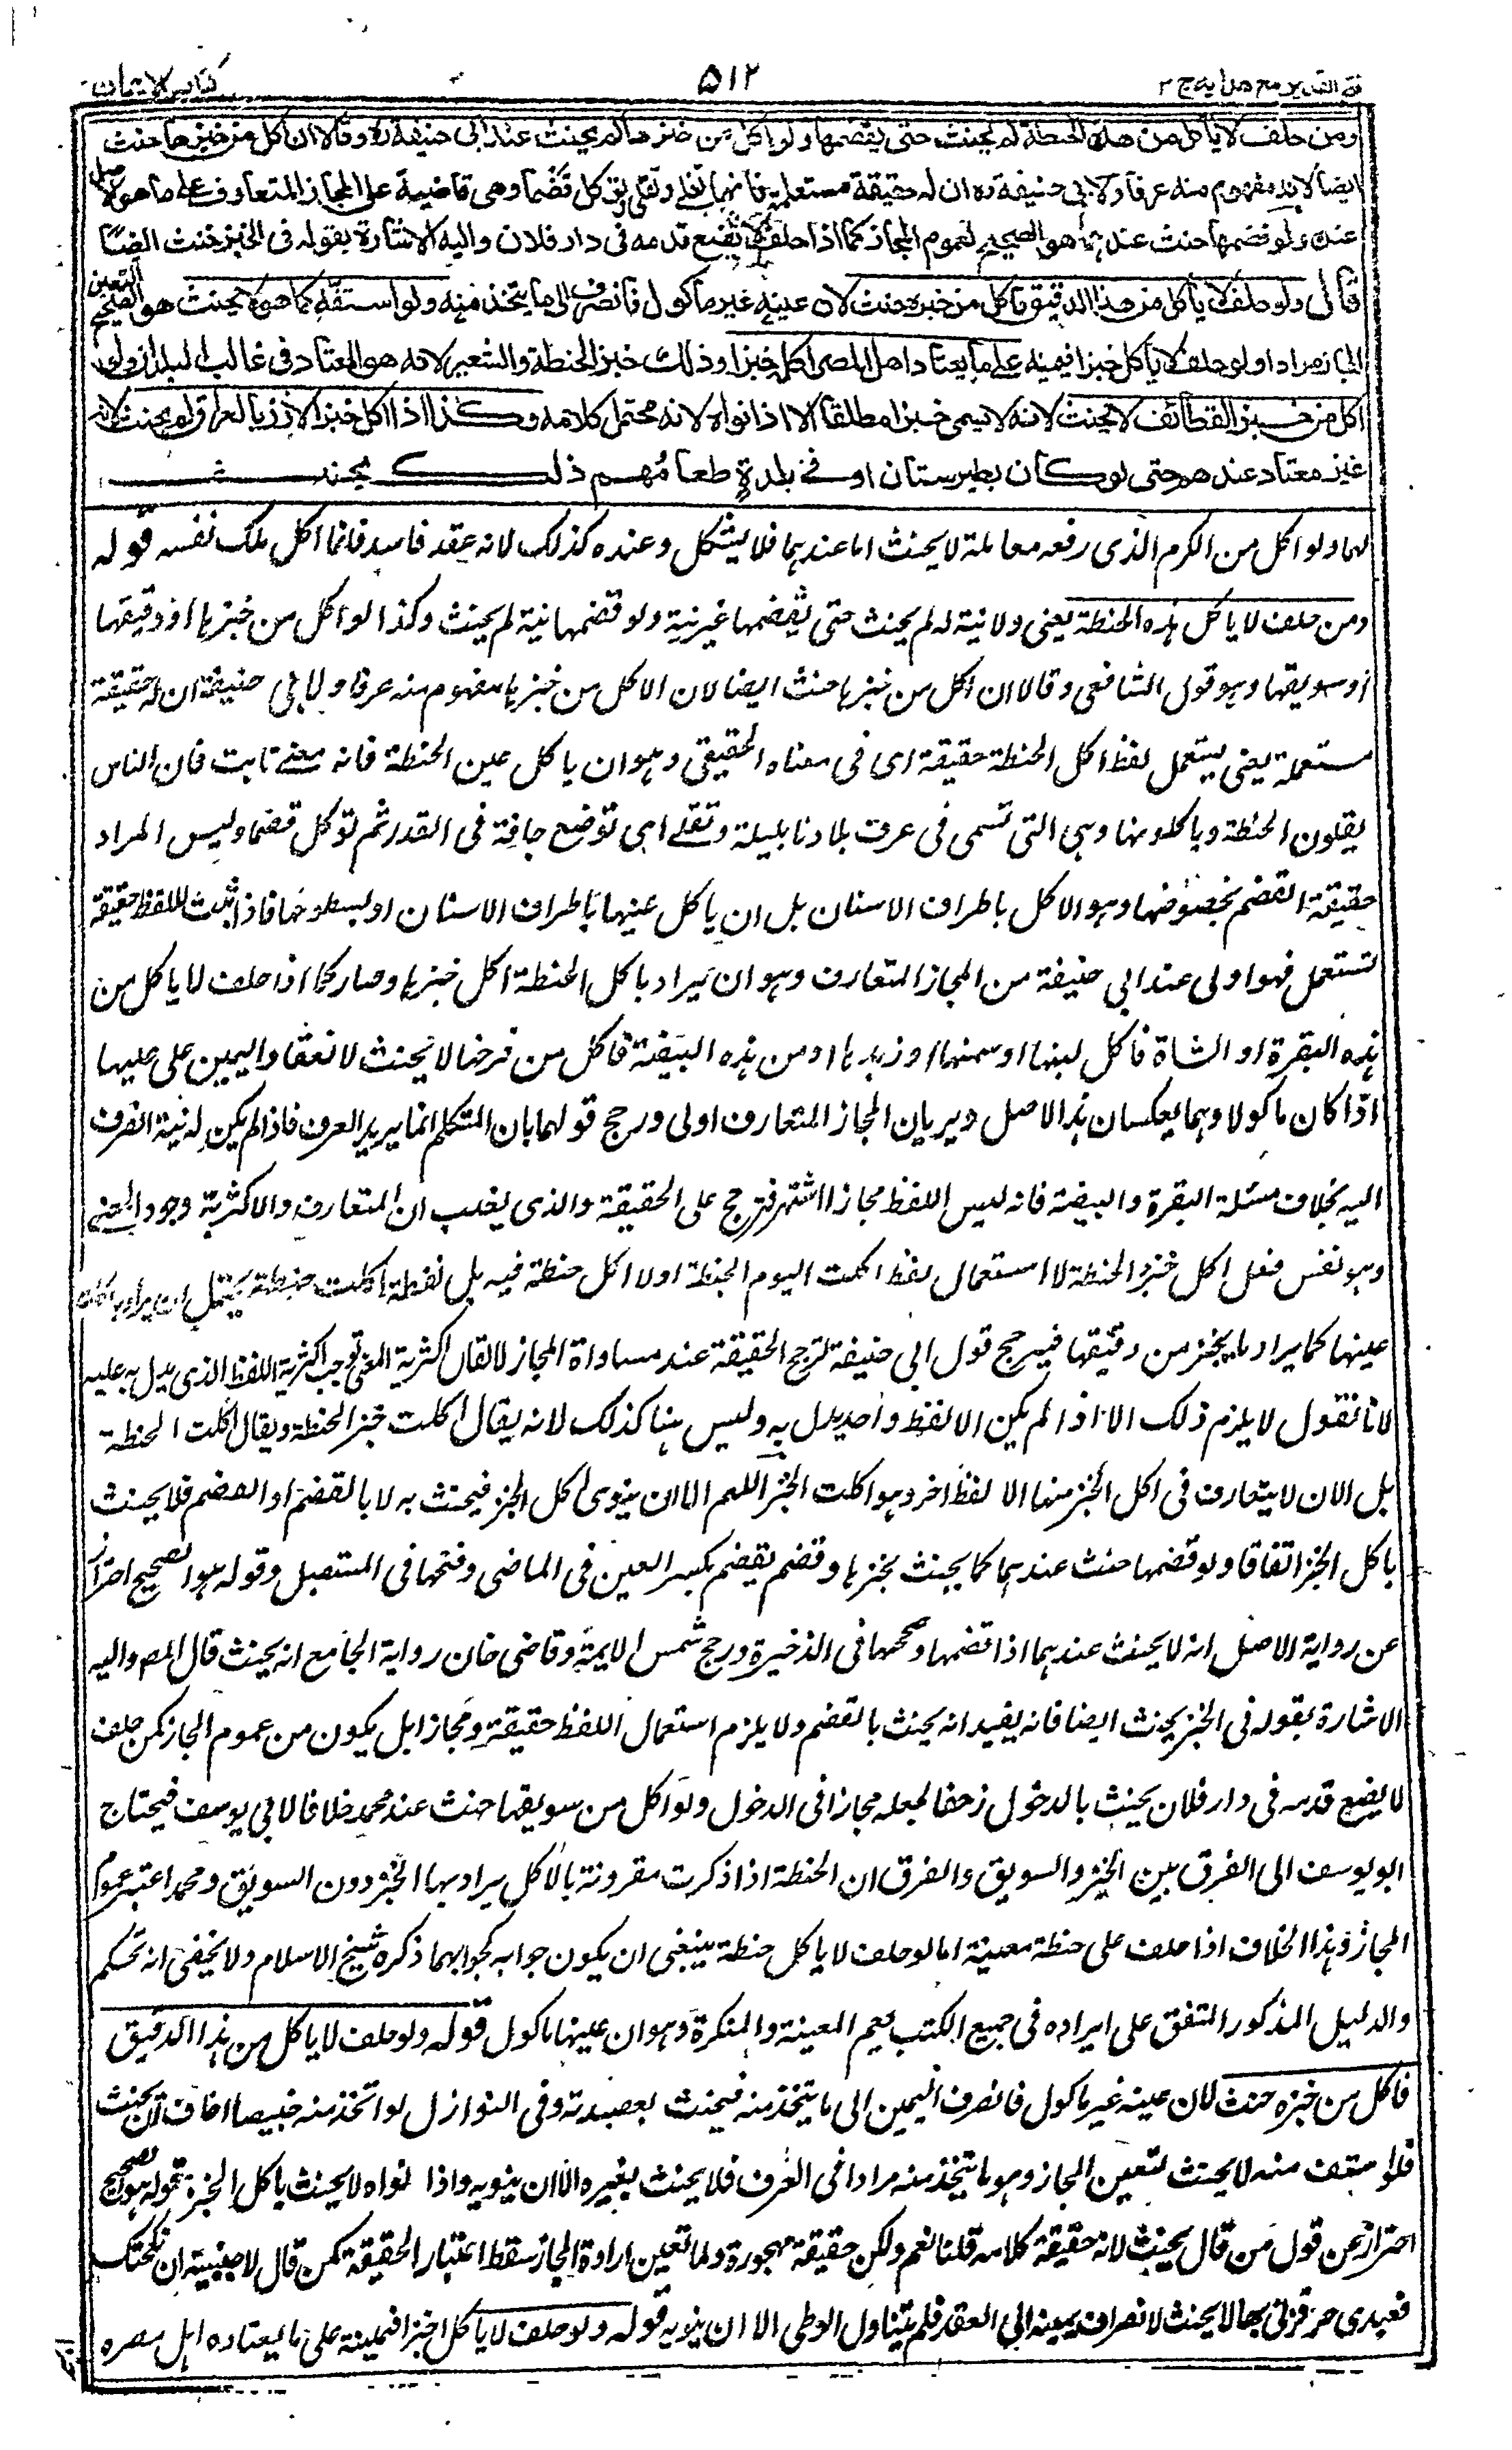 فتح القدیر مع هدایه ج ۲
۵۱۲
كتاب الايمان
ومن حلف لا يأكل من هذه الحنطة لم يحنث حتى يقضمها ولو اكل من خبزها لم يحنث عند ابى حنيفة ره وقالا ان اكل من خبزها حنث
ايضا لانه مفهوم منه عرفا ولابى حنيفة ره ان له حقيقة مستعملة فانها تغلى وتقلى وتؤكل قضما وهى قاضية على المجاز المتعارف على ما هو الاصل
عنده ولو قضمها حنث عندهما هو الصحيح لعموم المجاز كما اذا حلف لا يضع قدمه فى دار فلان واليه الاشارة بقوله فى الخبز حنث ايضا
قال ولو حلف لا يأكل من هذا الدقيق فاكل من خبزه حنث لان عينه غير ماكول فانصرف الى ما يتخذ منه ولو استفه كما هو لا يحنث هو الصحيح لتعين
المجاز مرادا ولو حلف لا يأكل خبزا فيمينه على ما يعتاد اهل المصر اكله خبزا وذلك خبز الحنطة والشعير لانه هو المعتاد فى غالب البلدان ولو
اكل من خبز القطائف لا يحنث لانه لا يسمى خبزا مطلقا الا اذا نواه لانه محتمل كلامه وكذا اذا اكل خبز الارز بالعراق لم يحنث لانه
غير معتاد عندهم حتى لو كان بطبرستان او فى بلدة طعامهم ذلك يحنث
لهما ولو اكل من الكرم الذى رفعه معاملة لا يحنث اما عندهما فلا يشكل وعنده كذلك لانه عقد فاسد فانما اكل ملك نفسه قوله
ومن حلف لا ياكل هذه الحنطة يعنى ولا نية له لم يحنث حتى يقضمها غير نية ولو قضمها نية لم يحنث وكذا لو اكل من خبزها او دقيقها
او سويقها وهو قول الشافعى وقالا ان اكل من خبزها حنث ايضا لان الاكل من خبزها مفهوم منه عرفا ولابى حنيفة ان له حقيقة
مستعملة يعنى يستعمل لفظ اكل الحنطة حقيقة اى فى معناه الحقيقى وهو ان ياكل عين الحنطة فانه معنى ثابت فان الناس
يقلون الحنطة وياكلونها وهى التى تسمى فى عرف بلادنا بليلة وتقلى اى توضع جافة فى القدر ثم تؤكل قضما وليس المراد
حقيقة القضم بخصوصها وهو الاكل باطراف الاسنان بل ان ياكل عينها باطراف الاسنان او بسطوحها فاذا ثبت للفظ حقيقة
تستعمل فهو اولى عند ابى حنيفة من المجاز المتعارف وهو ان يراد باكل الحنطة اكل خبزها وصار كما اذا حلف لا ياكل من
هذه البقرة او الشاة فاكل لبنها او سمنها او زبدها او من هذه البيضة فاكل من فرخها لا يحنث لانعقاد اليمين على عينها
اذا كان ماكولا وهما يعكسان هذا الاصل ويريان المجاز المتعارف اولى ورجح قولهما بان المتكلم انما يريد العرف فاذا لم يكن له نية انصرف
اليه بخلاف مسئلة البقرة والبيضة فانه ليس اللفظ مجازا اشتهر فترجح على الحقيقة والذى يغلب ان المتعارف والاكثرية وجود المعنى
وهو نفس فعل اكل خبز الحنطة لا استعمال لفظ اكلت اليوم الحنطة او لا اكل حنطة فيه بل لفظة اكلت حنطة يحتمل ان يراد به
عينها كما يراد ما يخبز من دقيقها فيرجح قول ابى حنيفة لترجح الحقيقة عند مساواة المجاز لا يقال اكثرية المعنى توجب اكثرية اللفظ الذى يدل به عليه
لانا نقول لا يلزم ذلك الا اذا لم يكن الا لفظ واحد يدل به وليس هنا كذلك لانه يقال اكلت خبز الحنطة ويقال اكلت الحنطة
بل الان لا يتعارف فى اكل الخبز منها الا لفظ اخر وهو اكلت الخبز اللهم الا ان ينوى اكل الخبز فيحنث به لا بالقضم او القضم فلا يحنث
باكل الخبز اتفاقا ولو قضمها حنث عندهما كما يحنث بخبزها وقضم يقضم بكسر العين فى الماضى وفتحها فى المستقبل وقوله هو الصحيح احتراز
عن رواية الاصل انه لا يحنث عندهما اذا قضمها وصححها فى الذخيرة ورجح شمس الايمة وقاضى خان رواية الجامع انه يحنث قال المص واليه
الاشارة بقوله فى الخبز يحنث ايضا فانه يفيد انه يحنث بالقضم ولا يلزم استعمال اللفظ حقيقة ومجازا بل يكون من عموم المجاز كمن حلف
لا يضع قدمه فى دار فلان يحنث بالدخول زحفا لجعله مجازا فى الدخول ولو اكل من سويقها حنث عند محمد خلافا لابى يوسف فيحتاج
ابو يوسف الى الفرق بين الخبز والسويق والفرق ان الحنطة اذا ذكرت مقرونة بالاكل يراد بها الخبز دون السويق ومحمد اعتبر عموم
المجاز وهذا الخلاف اذا حلف على حنطة معينة اما لو حلف لا ياكل حنطة ينبغى ان يكون جوابه كجوابهما ذكره شيخ الاسلام ولا يخفى انه تحكم
والدليل المذكور المتفق على ايراده فى جميع الكتب يعم المعينة والمنكرة وهو ان عينها ماكول قوله ولو حلف لا ياكل من هذا الدقيق
فاكل من خبزه حنث لان عينه غير ماكول فانصرف اليمين الى ما يتخذ منه فيحنث بعصيدته وفى النوازل لو اتخذ منه خبيصا اخاف ان يحنث
فلو استف منه لا يحنث لتعين المجاز وهو ما يتخذ منه مرادا فى العرف فلا يحنث بغيره الا ان ينويه واذا نواه لا يحنث باكل الخبز قوله هو الصحيح
احتراز عن قول من قال يحنث لانه حقيقة كلامه قلنا نعم ولكن حقيقة مهجورة ولما تعين ارادة المجاز سقط اعتبار الحقيقة كمن قال لاجنبية ان نكحتك
فعبدى حر فزنى بها لا يحنث لانصراف يمينه الى العقد فلم يتناول الوطى الا ان ينويه قوله ولو حلف لا ياكل خبزا فيمينه على ما يعتاده اهل مصره